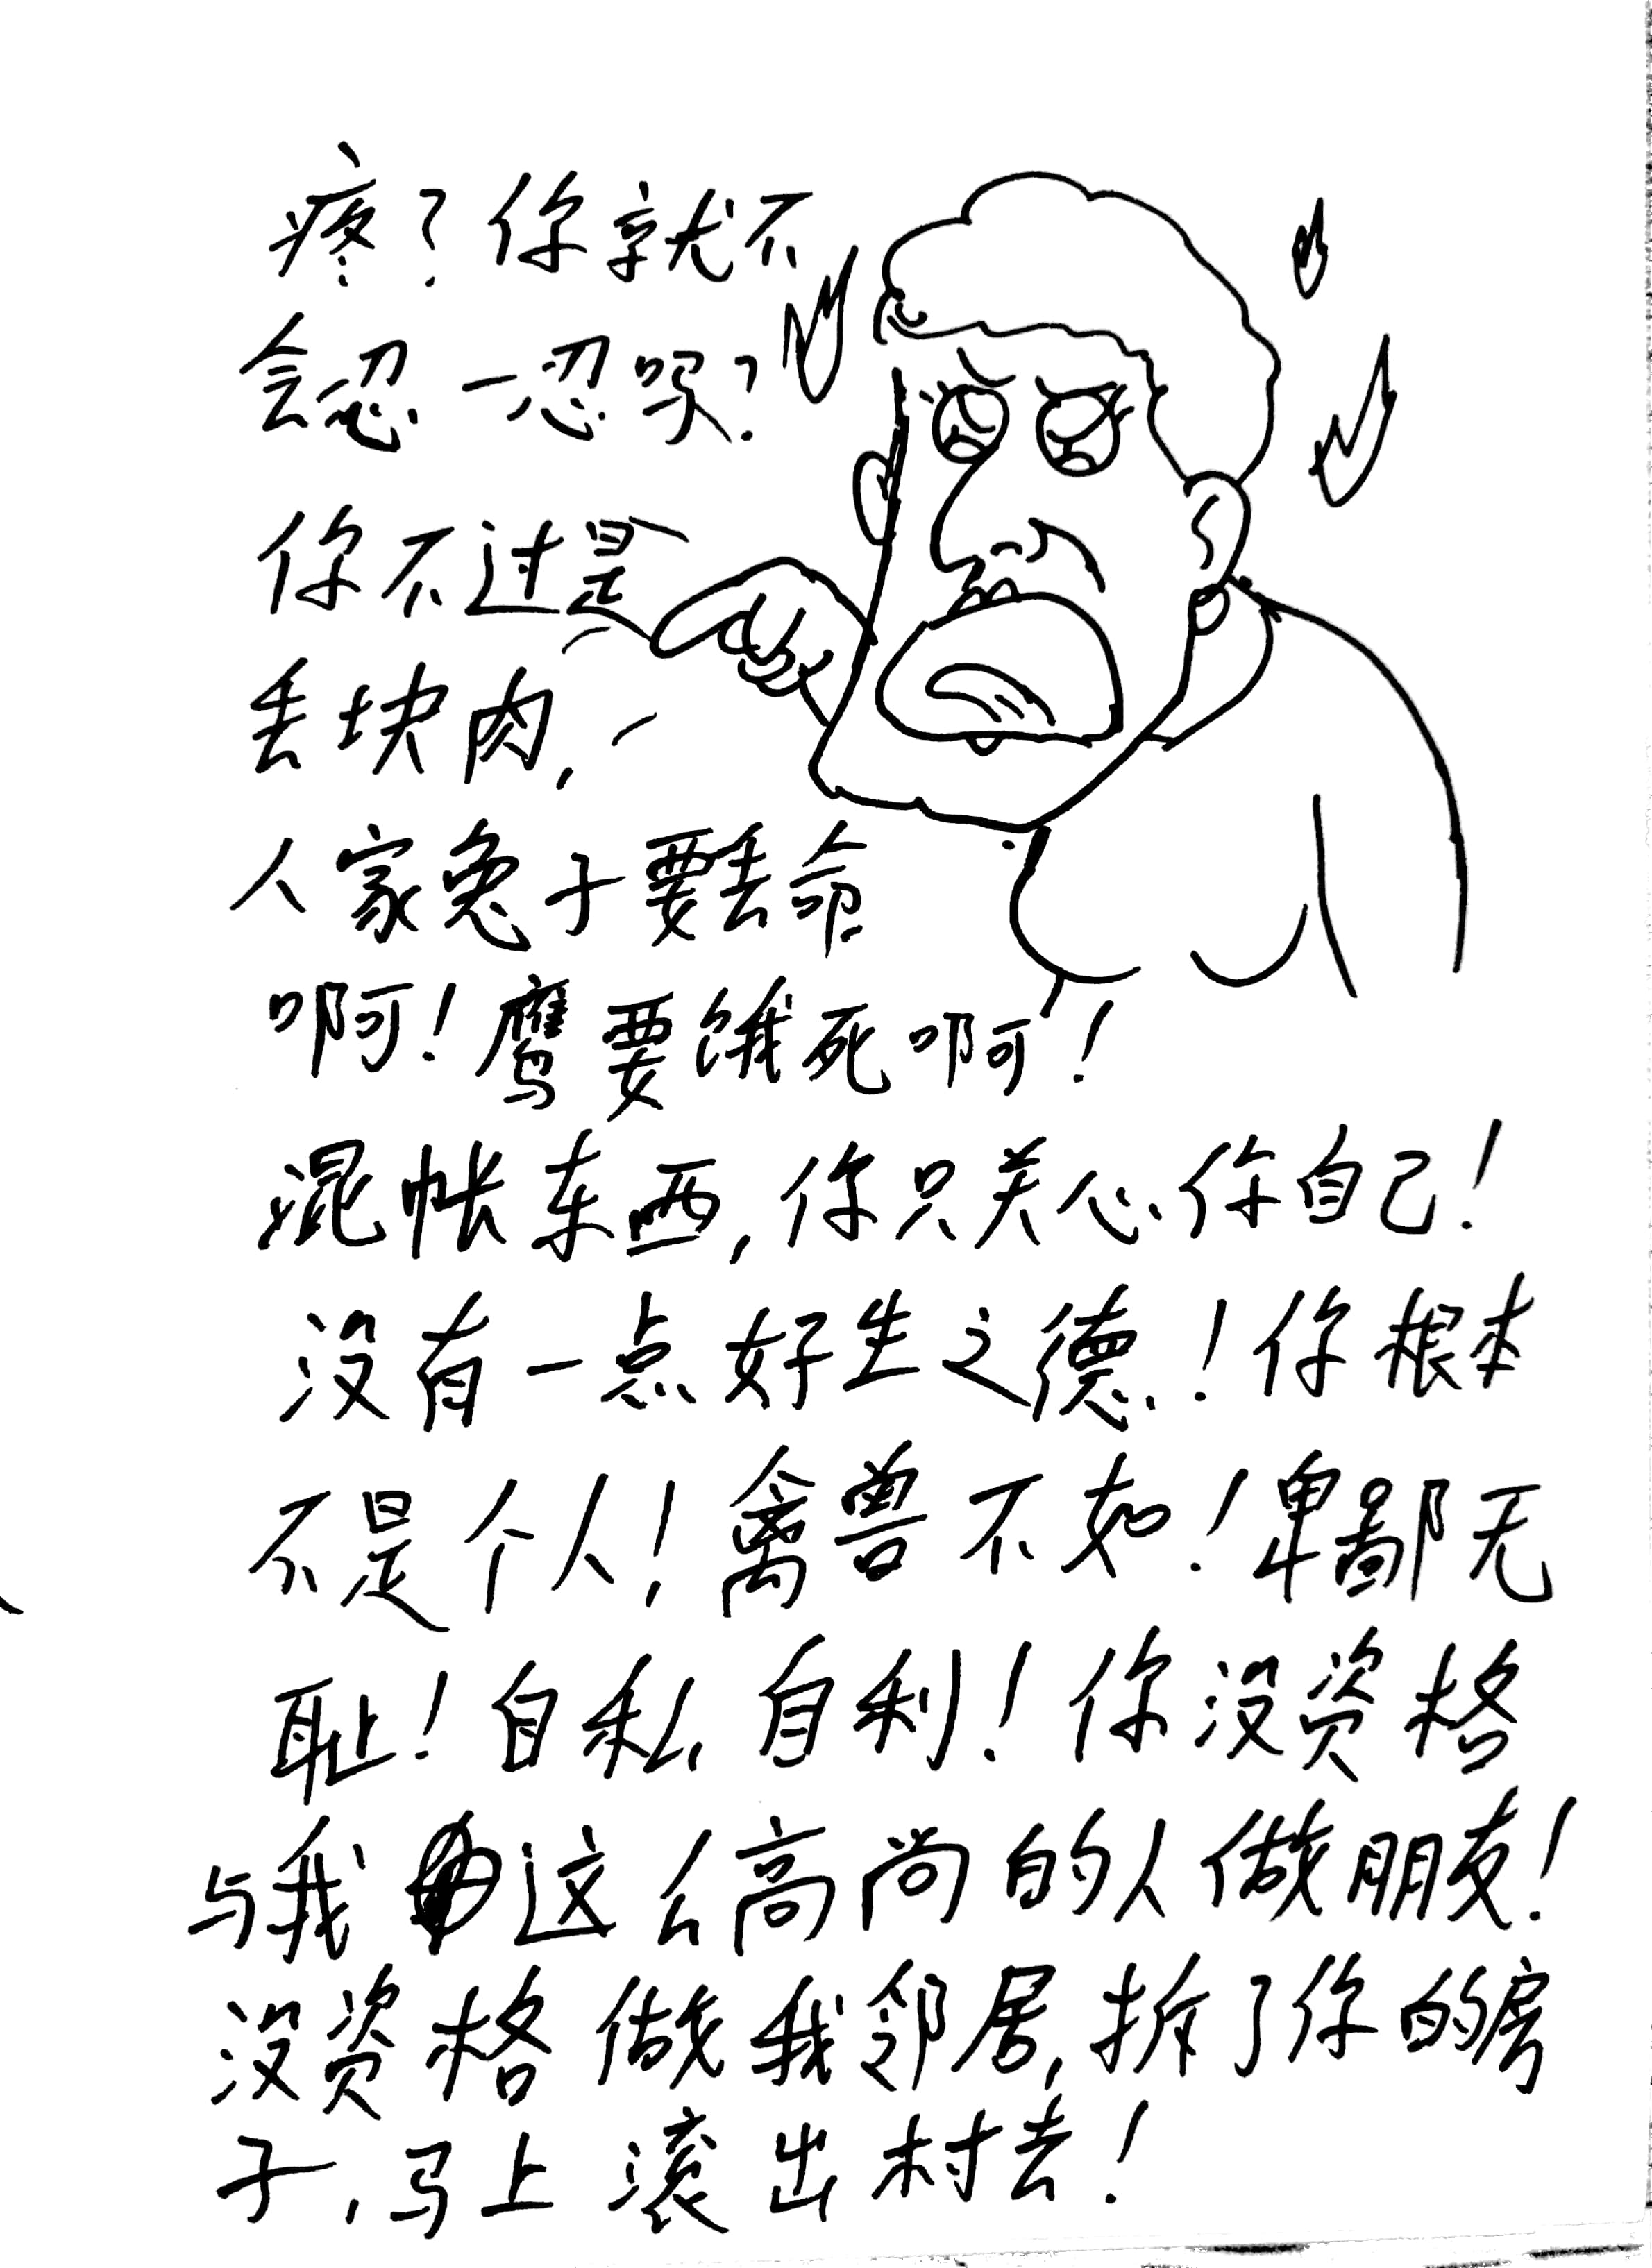 疼？你就不
会忍一忍吗？
你不过是
丢块肉，
人家兔子要丢命
啊！鹰要饿死啊！
混帐东西，你只关心你自己！
没有一点好生之德！你根本
不是个人！禽兽不如！卑鄙无
耻！自私自利！你没资格
与我这么高尚的人做朋友！
没资格做我邻居，拆了你的房
子，马上滚出村去！